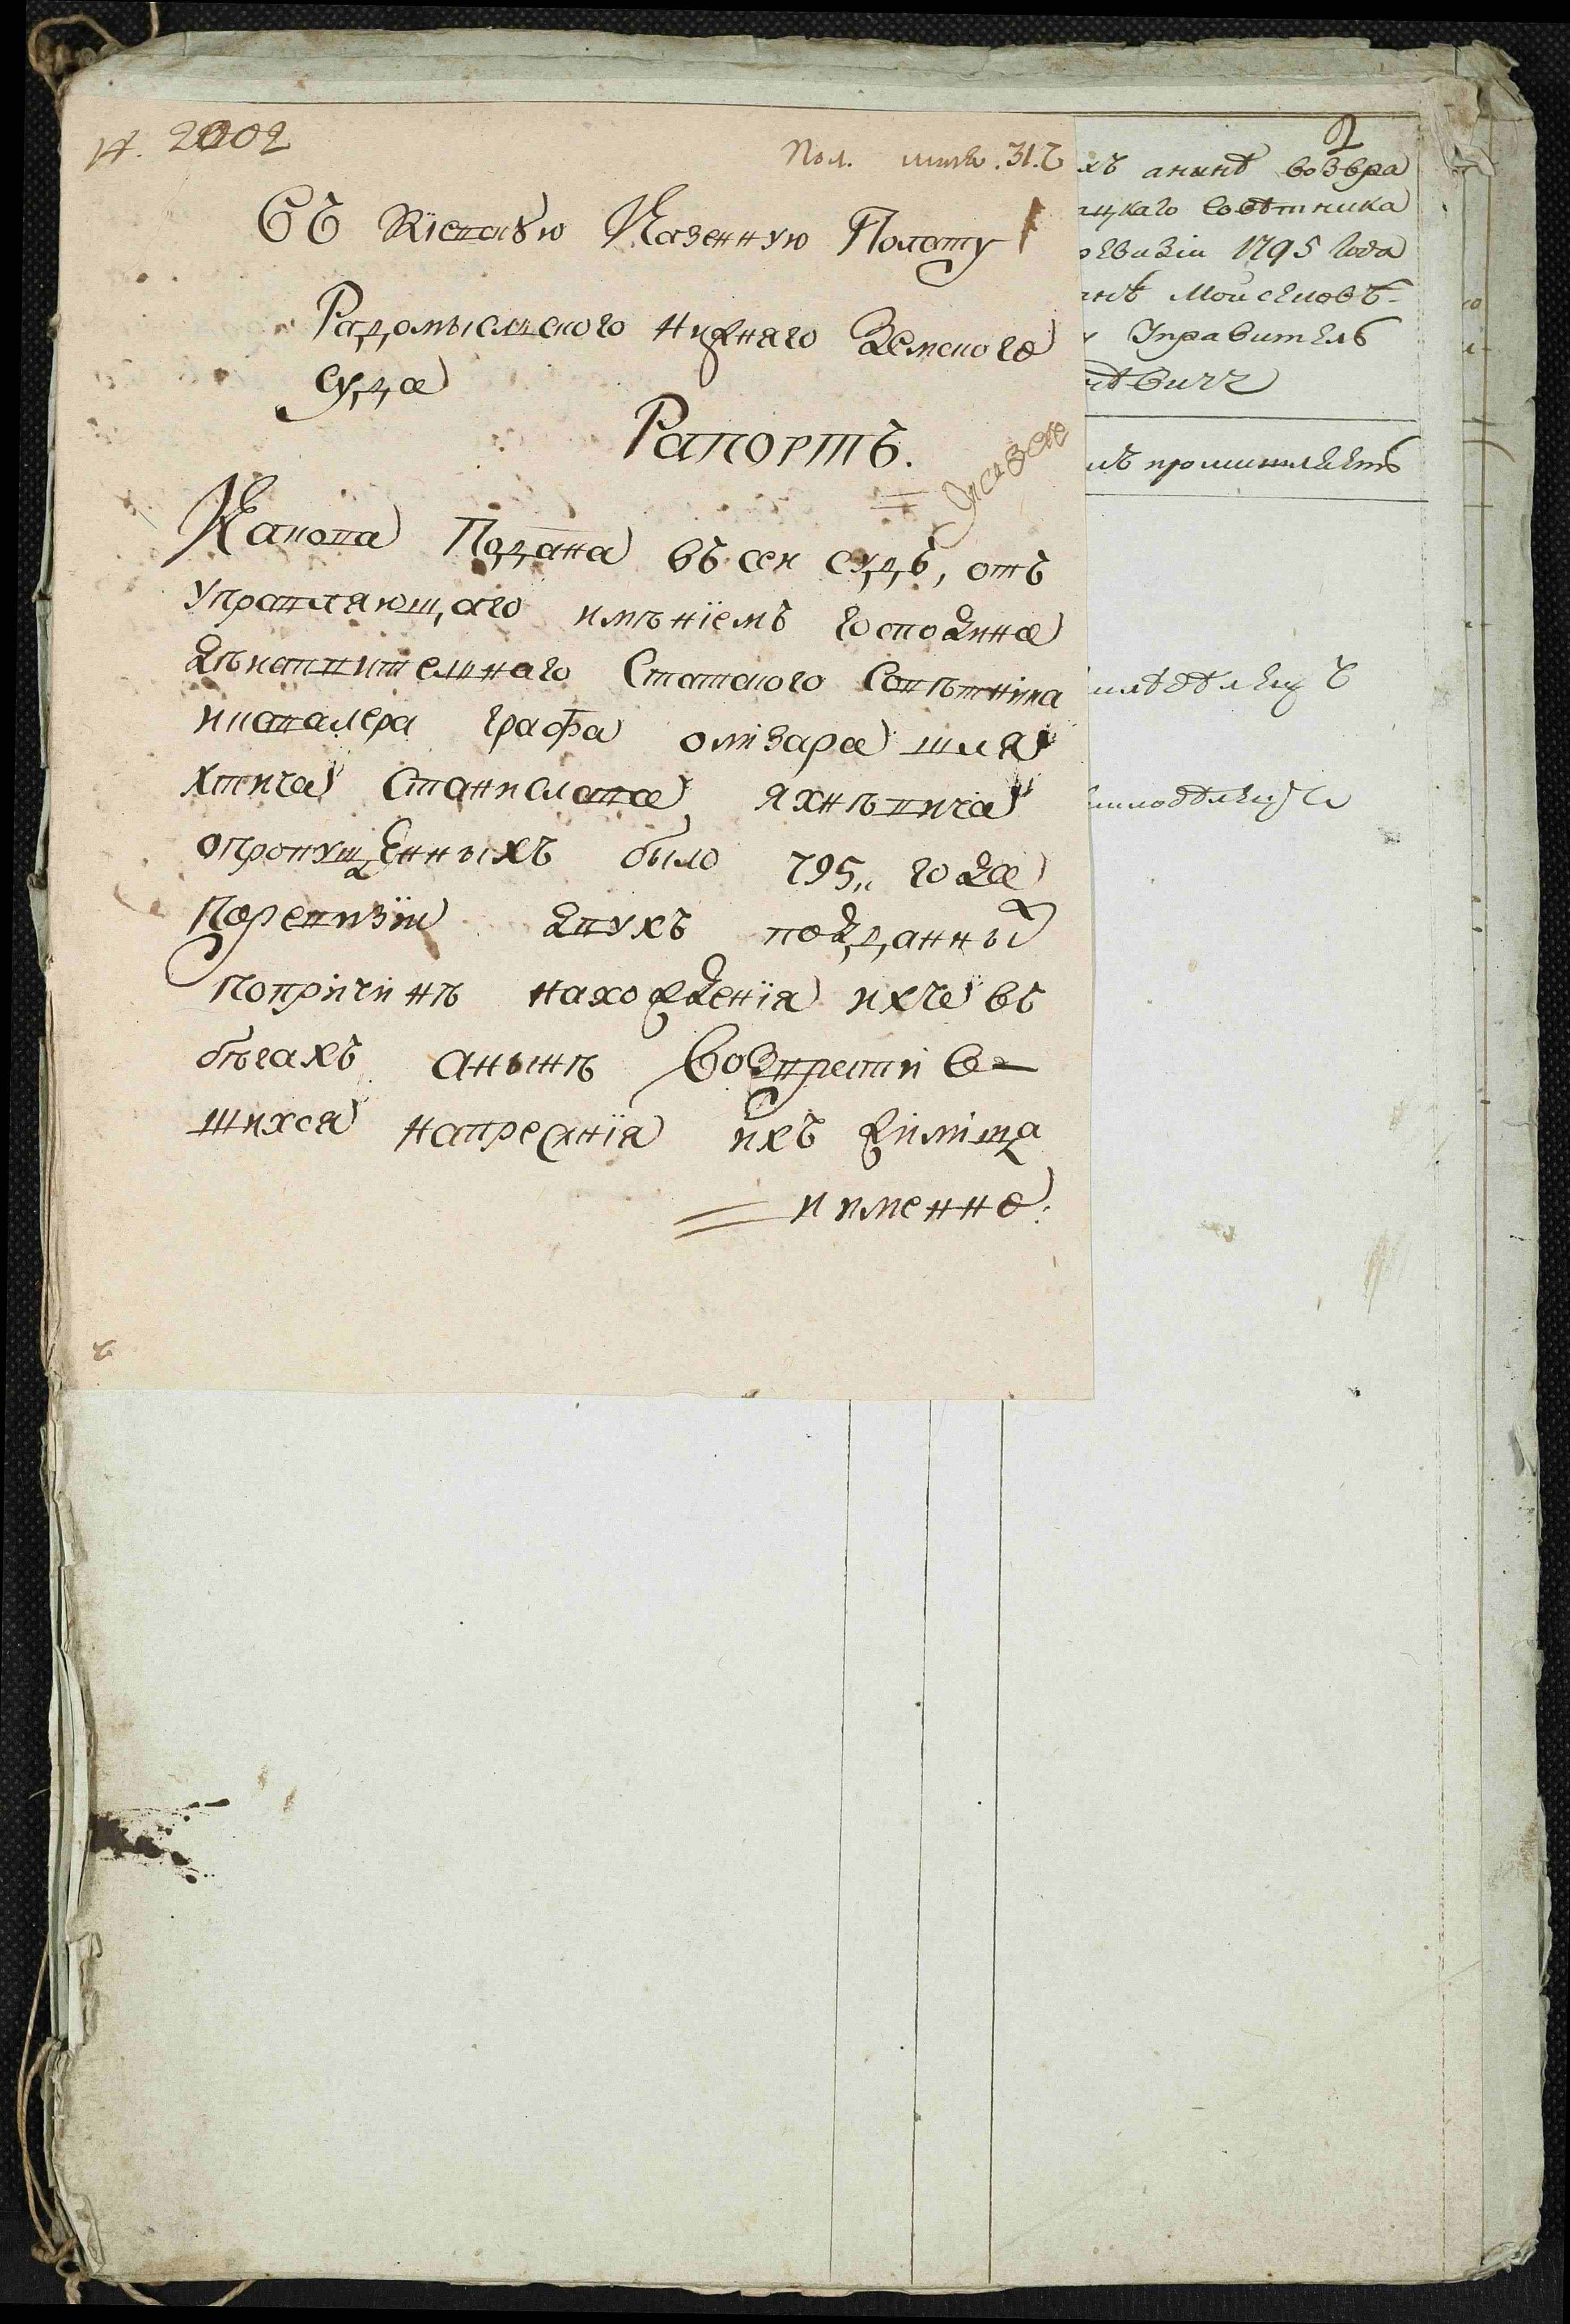 №. 2202
Пол. 31.
Въ Кіевскую Казенную Полату
Радомысльского нижняго Земского
суда
Рапортъ.
Какова Подана въ сей судъ, отъ
управляющаго имѣніемъ господина
дѣиствительнаго Статского Совѣтника
икавалера графа олізара шля
хтича Станислава яхнѣвича
опропущенныхъ было 795,, года
Поревизіи двухъ подданныхъ
попричинѣ нахожденія ихъ въ
бѣгахъ анынѣ возвратив-
шихся напрежнія ихъ жилища
именно:
2
хъ анинѣ возвра
Совѣтника
ревизіи 1795 года
Управитель
мъ промишляетъ